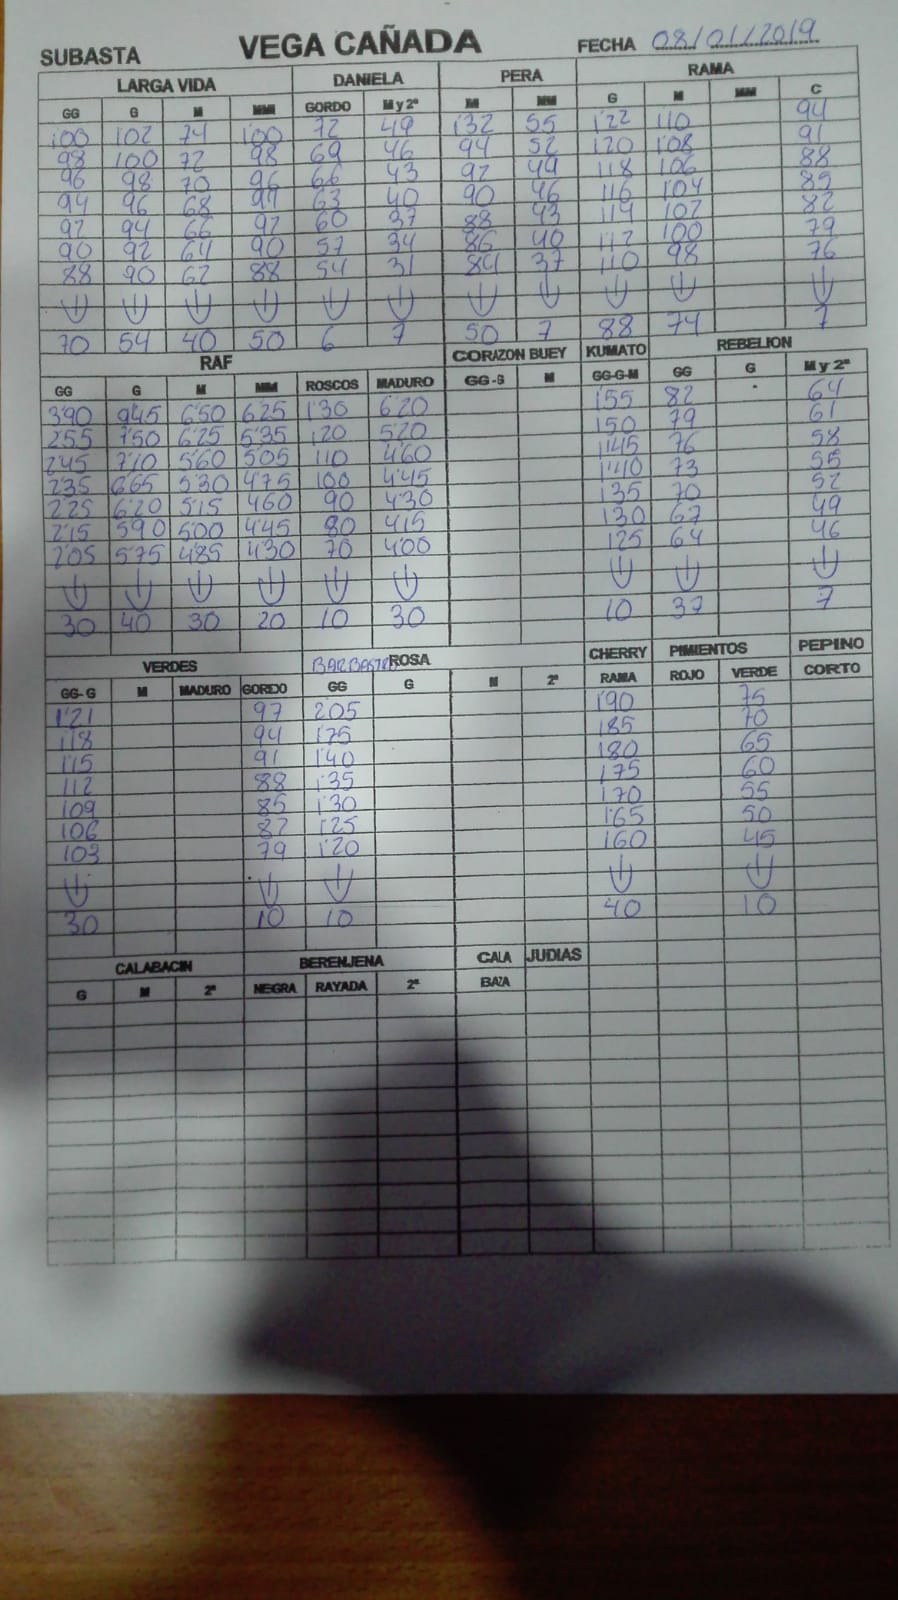 SUBASTA VEGA CAÑADA FECHA 08/01/2019
LARGA VIDA DANIELA PERA RAMA
GG G M MM GORDO M y 2ª M MM G M MM C
1'00 1'02 74 1'00 72 49 1'32 55 1'22 1'10 94
98 1'00 72 98 69 46 94 52 1'20 1'08 91
96 98 70 96 66 43 92 49 1'18 1'06 88
94 96 68 94 63 40 90 46 1'16 1'04 85
92 94 66 92 60 37 88 43 1'14 1'02 82
90 92 64 90 57 34 86 40 1'12 1'00 79
88 90 62 88 54 31 84 37 1'10 98 76
70 54 40 50 6 7 50 7 88 74 7
RAF CORAZON BUEY KUMATO REBELION
GG G M MM ROSCOS MADURO GG-G M GG-G-M GG G M y 2ª
3'90 9'45 6'50 6'25 1'30 6'20 1'55 82 64
2'55 7'50 6'25 5'35 1'20 5'20 1'50 79 61
2'45 7'10 5'60 5'05 1'10 4'60 1'45 76 58
2'35 6'65 5'30 4'75 1'00 4'45 1'40 73 55
2'25 6'20 5'15 4'60 90 4'30 1'35 70 52
2'15 5'90 5'00 4'45 80 4'15 1'30 67 49
2'05 5'75 4'85 4'30 70 4'00 1'25 64 46
30 40 30 20 10 30 10 37 7
VERDES ROSA CHERRY PIMIENTOS PEPINO
GG-G M MADURO GORDO GG G M 2ª RAMA ROJO VERDE CORTO
1'21 97 2'05 1'90 75
1'18 94 1'75 1'85 70
1'15 91 1'40 1'80 65
1'12 88 1'35 1'75 60
1'09 85 1'30 1'70 55
1'06 82 1'25 1'65 50
1'03 79 1'20 1'60 45
30 10 10 40 10
CALABACIN BERENJENA CALA JUDIAS
G M 2ª NEGRA RAYADA 2ª BAZA